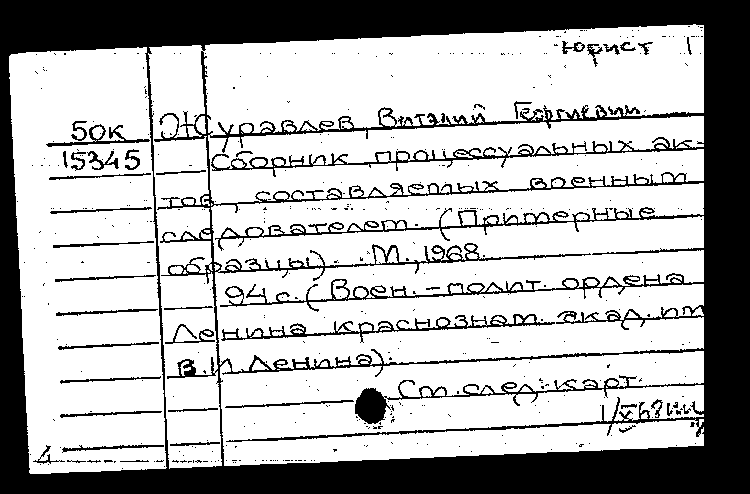 юрист 1
50к Журавлев, Виталий Георгиевич
15345 Сборник процессуальных ак-
тов, составляемых военным
следователем. (Примерные
образцы). М., 1968.
94 с. (Воен.-полит. ордена
Ленина краснознам. акад. им
В.И. Ленина).
См. след. карт.